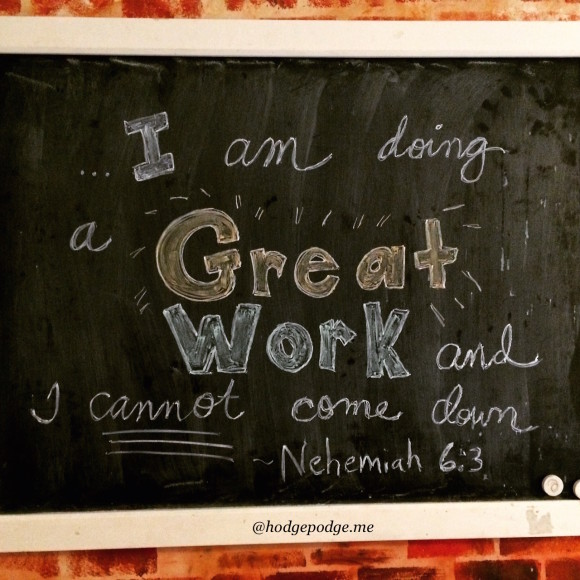 ...I am doing
a Great
Work and
I cannot come down
~Nehemiah 6:3
@hodgepodge.me